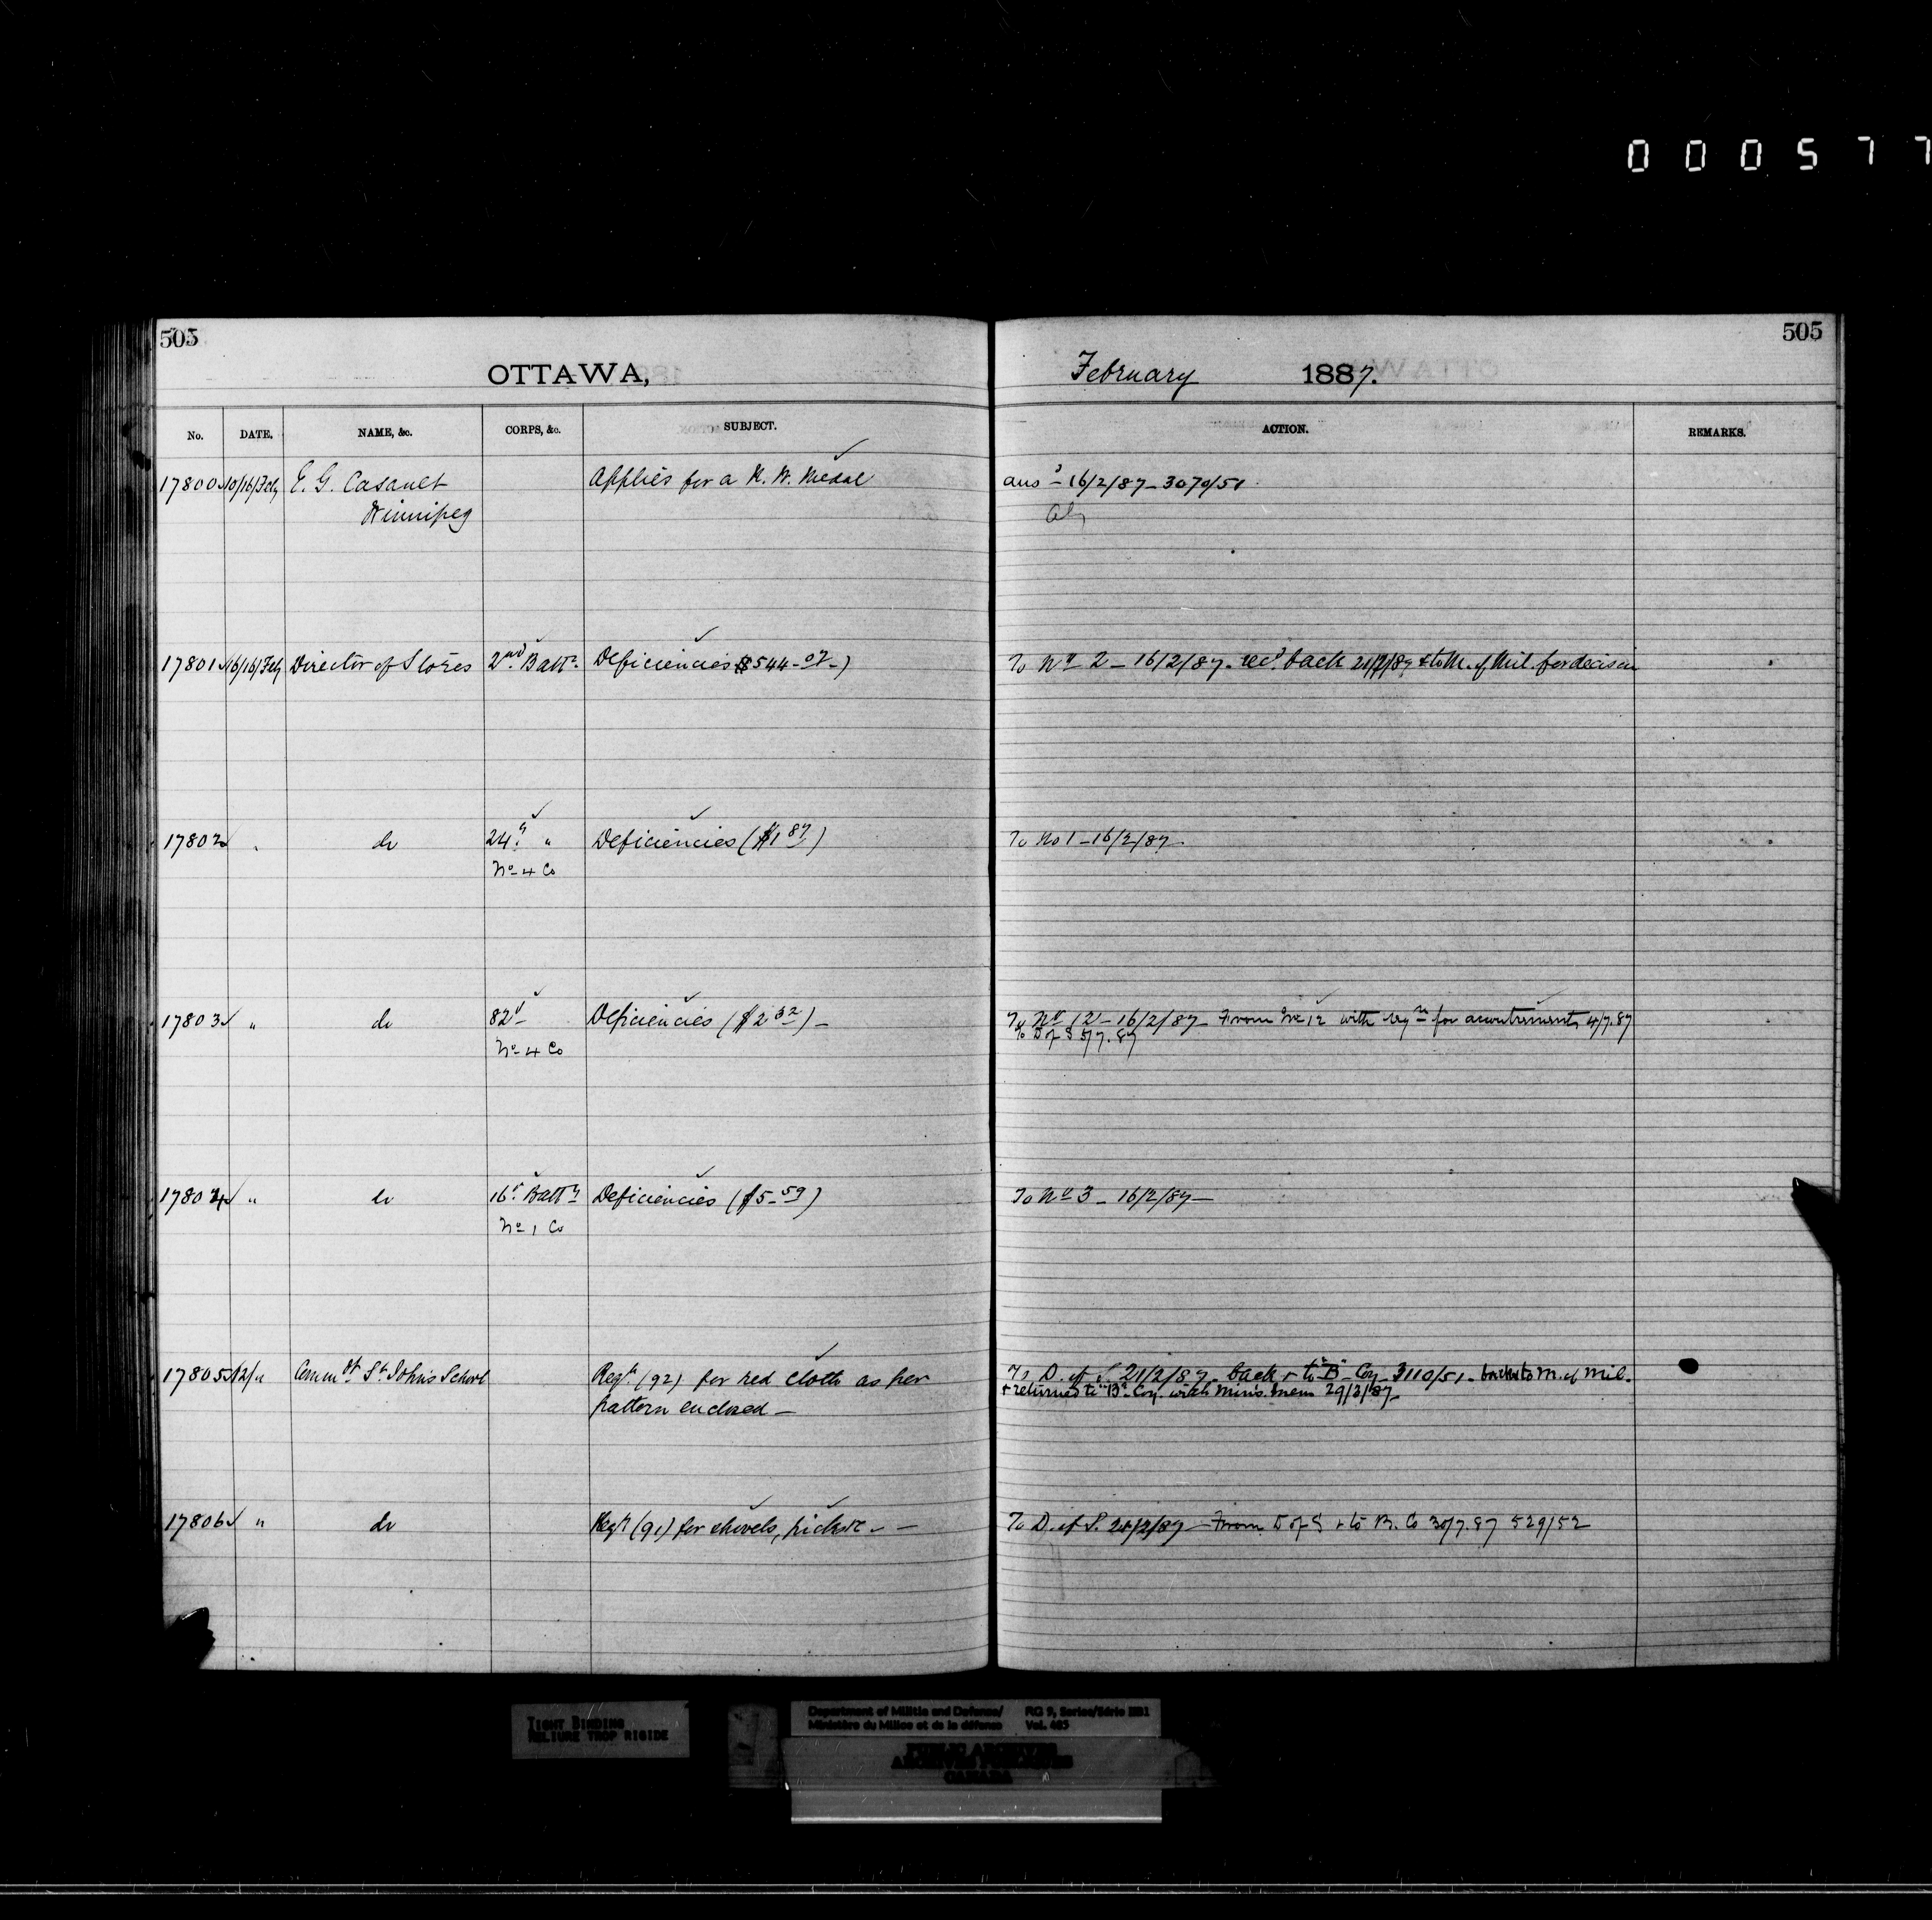 000577
505
505
OTTAWA,
February 1887.
No. DATE. NAME, &c. CORPS, &c. SUBJECT. ACTION. REMARKS.
17800 10/16/Feby E. G. Casault Applies for a N. W. Medal ansd 16/2/87 - 3070/51
Winnipeg
17801 16/16/Feby Director of Stores 2nd Battn Deficiencies $544-07-) To No 2 - 16/2/87. recd back 21/2/87 & to M. of Mil. for decision
17802 " do 24th " Deficiencies ($1 87) To No 1 - 16/2/87.
No 4 Co
17803 " do 82d Deficiencies ($2 32) - To No 12 - 16/2/87 - From No 12 with reqn for accoutrements 4/7.87
No 4 Co To D of S 5/7.87
17804 " do 16th Battn Deficiencies ($5-59) To No 3 - 16/2/87 -
No 1 Co
17805 12/" Commdt St Johns School Reqn (92) for red cloth as per To D. of S. 21/2/87 - back & to "B" Coy 3110/51 - back to M. of Mil.
pattern enclosed - & returned to "B" Coy. with Minis. Mem 29/3/87-
17806 " do Reqn (91) for shovels, picks &c - - To D. of S. 21/2/87 - From D of S & to B. Co 30/7.87 529/52
TIGHT BINDING
RELIURE TROP RIGIDE
Department of Militia and Defence/ RG 9, Series/Série IIB1
Ministère du Milice et de la défense Vol. 405
PUBLIC ARCHIVES
ARCHIVES PUBLIQUES
CANADA